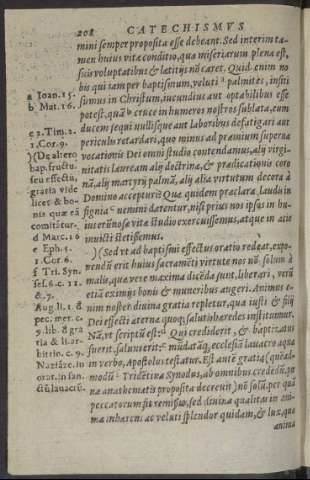 208 CATECHISMVS
mini semper proposita esse debeant. Sed interim ta-
men huius vitæ conditio, qua miseriarum plena est,
suis voluptatibus & lætitijs nō caret. Quid enim no
bis qui iam per baptismum, veluti ᵃ palmites, insiti
sumus in Christum, iucundius aut optabilius esse
potest, quā ᵇ cruce in humeros nostros sublata, eum
ducem sequi nullisque aut laboribus defatigari aut
periculu retardari, quo minus ad præmium supernæ
vocationis Dei omni studio contendamus, alij virgi-
nitatis lauream alij doctrinæ, & prædicationis coro
nā, alij martyrij palmā, alij alia virtutum decora à
Domino accepturi? Quæ quidem præclara laudis in
signia nemini darentur, nisi prius nos ipsos in hu-
ius vitæ studio exercuissemus, atque in acie
inuicti stetissemus.
) (Sed vt ad baptismi effectus oratio redeat, expo-
nendū erit huius sacramēti virtute nos nō solum à
malis, quæ vere maxima dicēda sunt, liberari, verū
etiā eximijs bonis & muneribus augeri. Animus e-
nim noster diuina gratia repletur, qua iusti & filij
Dei effecti æternæ quoque salutis hæredes instituimur.
Nā, vt scriptū est: Qui crediderit, & baptizatus
fuerit, saluus erit: mūdatāque ecclesiā lauacro aquæ
in verbo, Apostolus testatur. Est autē gratia (quēad-
modū Tridētina Synodus, ab omnibus credēdū, pœ
na anathematis proposita decreuit) nō solū, per quā
peccatorum fit remissio, sed diuina qualitas in ani-
ma inhærens ac veluti splendor quidam, & lux, quæ
anima
a Ioan. 15.
b Mat. 16.
c 2. Tim. 2.
1. Cor. 9.
)(De altero
bap. fructu,
seu effectu,
gratia vide
licet & bo-
nis quæ eā
comitātur.
d Marc. 16
e Eph. 5.
1. Cor 6.
f Tri. Syn.
sess. 6. c. 11.
& 7.
Aug li. 1. d
pec. mer. c.
9. lib. d gra
tia & li. ar-
bitrio. c. 9.
Naziāze. in
orat. in san-
ctū lauacrū.